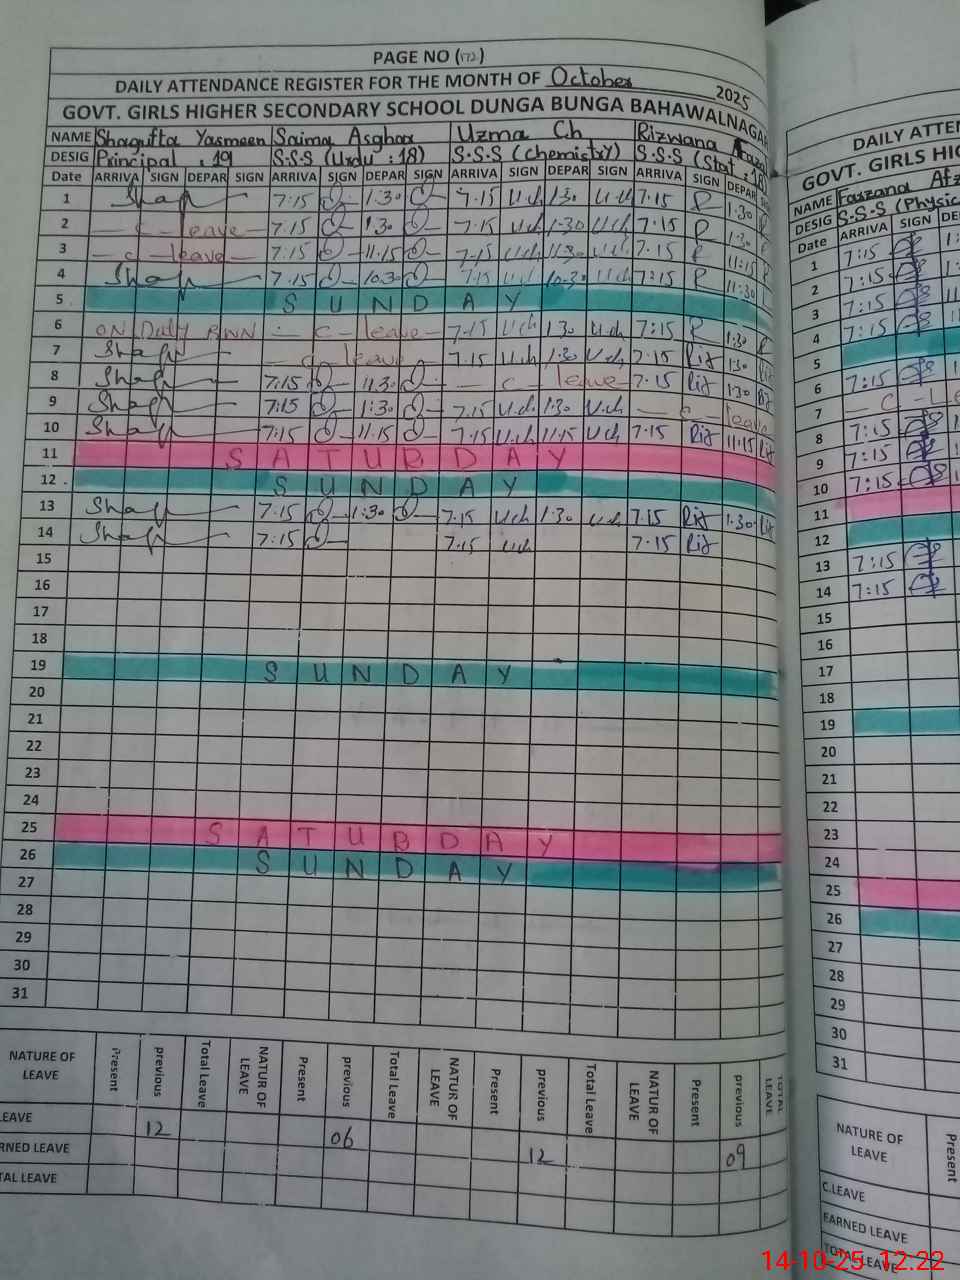 PAGE NO (172)
DAILY ATTENDANCE REGISTER FOR THE MONTH OF October 2025
GOVT. GIRLS HIGHER SECONDARY SCHOOL DUNGA BUNGA BAHAWALNAGAR
NAME Shagufta Yasmeen Saima Asghar Uzma Ch Rizwana
DESIG Principal : 19 S.S.S (Urdu : 18) S.S.S (Chemistry) S.S.S (Stat : 18)
Date ARRIVA SIGN DEPAR SIGN ARRIVA SIGN DEPAR SIGN ARRIVA SIGN DEPAR SIGN ARRIVA SIGN DEPAR
1 7:15 1:30 7.15 Uch 1:30 Uch 7:15 R 1:30 R
2 - C - leave - 7:15 1.30 7.15 Uch 1.30 Uch 7.15 R 1:30
3 - C - leave - 7:15 11.15 7.15 Uch Uch 7.15 R 11:15
4 7:15 10.30 7.15 Uch 10.30 Uch 7:15 R 11:30
5 SUNDAY
6 ON Duty BWN - C - leave - 7.15 Uch 1:30 Uch 7:15 R 1:30 R
7 - C - leave 7.15 Uch 1:30 Uch 7.15 Riz 1:30 Riz
8 7:15 11.30 - C - leave - 7.15 Riz 1:30 Riz
9 7:15 1:30 7.15 Uch 1:30 Uch - C - leave
10 7:15 11.15 7.15 Uch 11.15 Uch 7.15 Riz 11:15 Riz
11 SATURDAY
12 SUNDAY
13 7.15 1:30 7.15 Uch 1:30 Uch 7.15 Riz 1.30 Riz
14 7:15 7.15 Uch 7.15 Riz
15
16
17
18
19 SUNDAY
20
21
22
23
24
25 SATURDAY
26 SUNDAY
27
28
29
30
31
NATURE OF LEAVE Present previous Total Leave NATUR OF LEAVE Present previous Total Leave NATUR OF LEAVE Present previous Total Leave NATUR OF LEAVE Present previous TOTAL LEAVE
LEAVE 12 06 12 09
RNED LEAVE
TAL LEAVE
DAILY ATTEN
GOVT. GIRLS HIG
NAME Farzana Afz
DESIG S.S.S (Physic
Date ARRIVA SIGN DE
1 7:15
2 7:15
3 7:15
4 7:15
5
6 7:15
7 - C - Le
8 7:15
9 7:15
10 7:15
11
12
13 7:15
14 7:15
15
16
17
18
19
20
21
22
23
24
25
26
27
28
29
30
31
NATURE OF LEAVE Present
C.LEAVE
EARNED LEAVE
TOTAL LEAVE
14-10-25 12.22